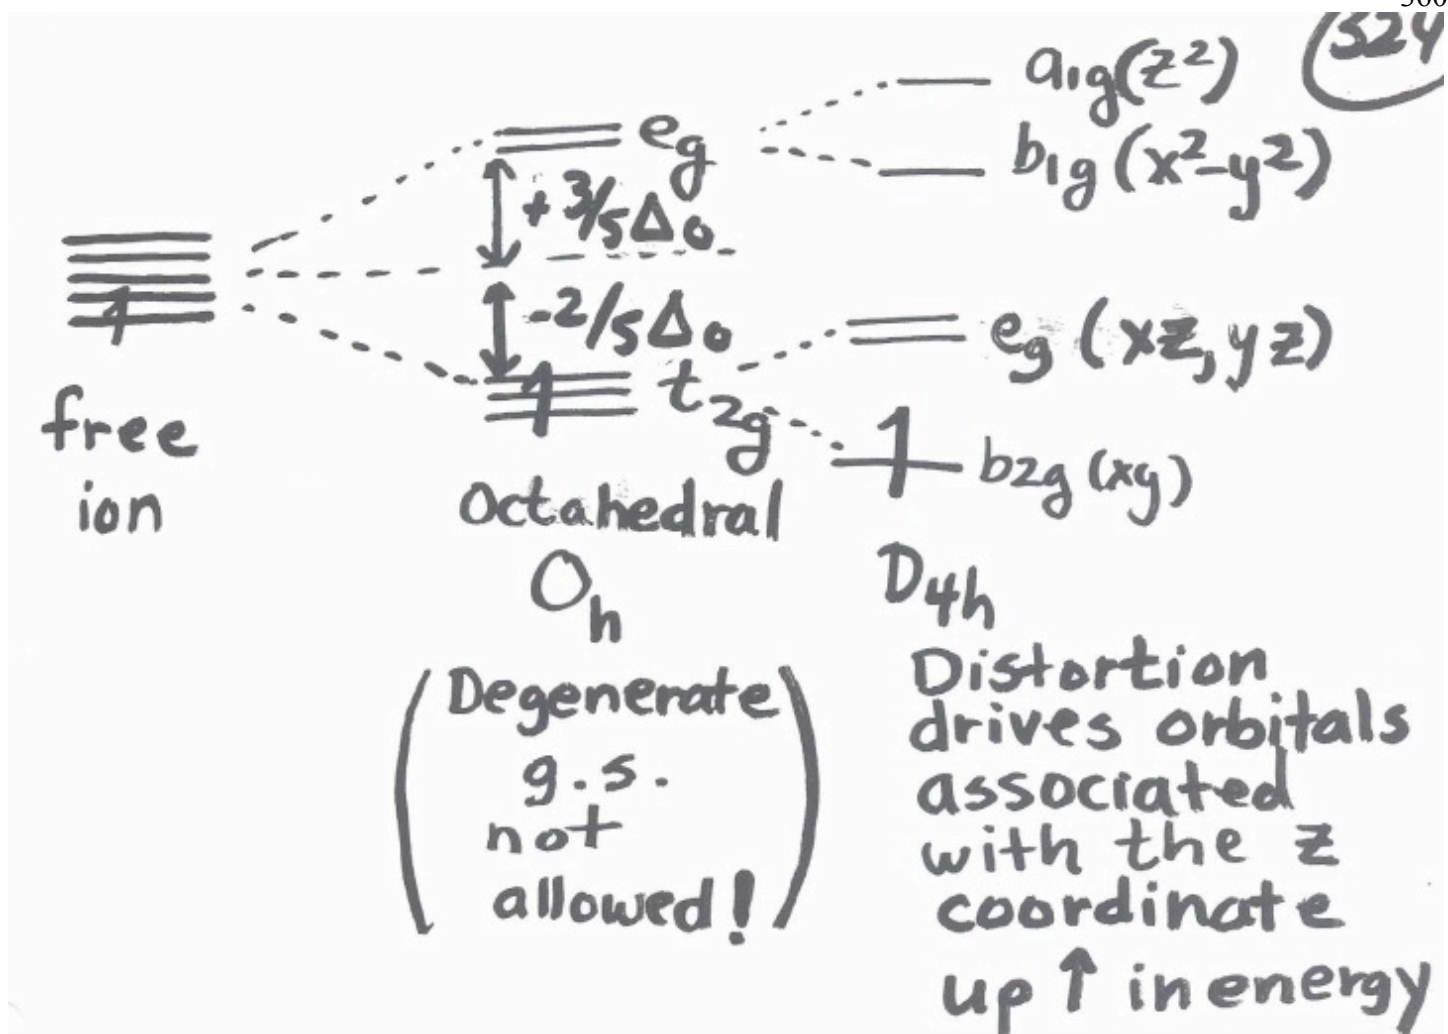 324
a₁g(z²)
b₁g(x²-y²)
eg
+3/5Δo
-2/5Δo
eg (xz, yz)
t₂g
b2g (xy)
1
1
1
free
ion
Octahedral
Oh
D4h
(Degenerate
g.s.
not
allowed!)
Distortion
drives orbitals
associated
with the z
coordinate
up ↑ in energy